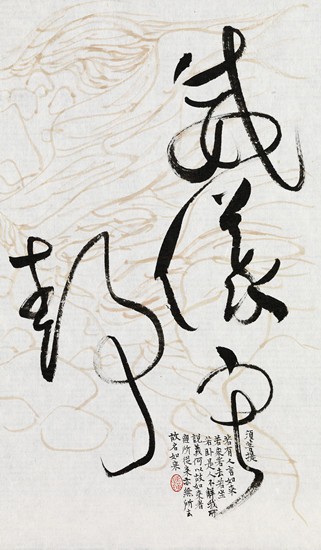 威儀寂
靜
須菩提
若有人言如來
若來若去若坐
若臥是人不解我所
說義何以故如來者
無所從來亦無所去
故名如來